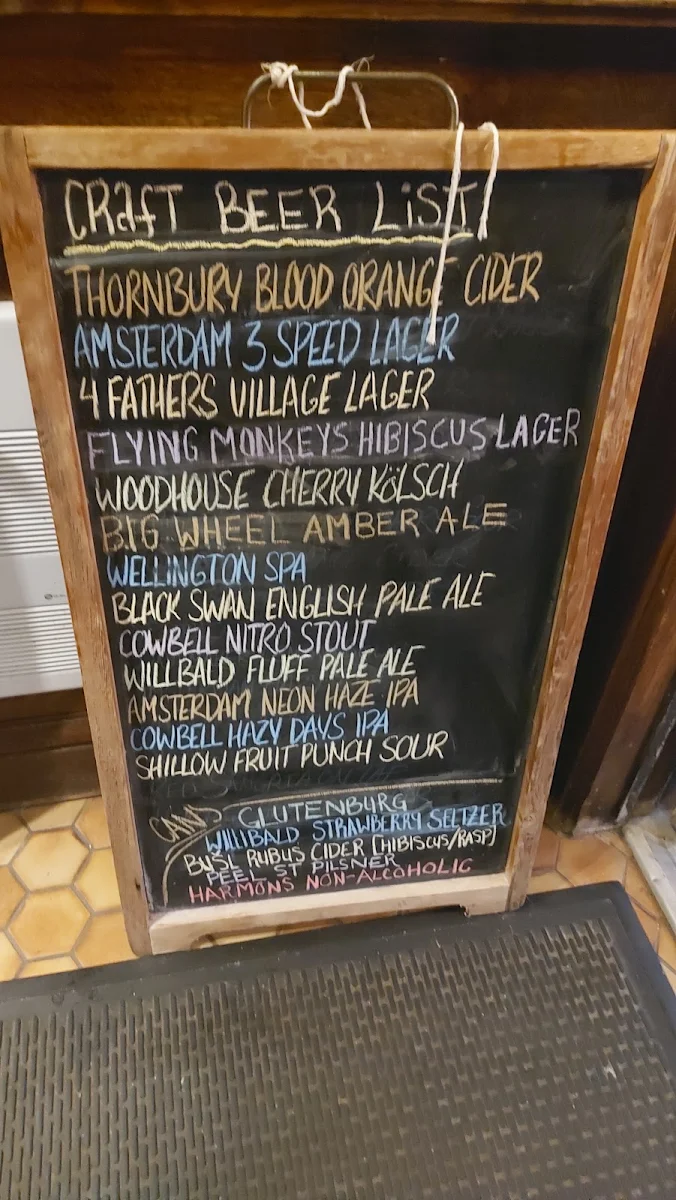 CRafT BEER LiST!
THORNBURY BLOOD ORANGE CIDER
AMSTERDAM 3 SPEED LAGER
4 FATHERS VILLAGE LAGER
FLYING MONKEYS HIBISCUS LAGER
WOODHOUSE CHERRY KÖLSCH
BIG WHEEL AMBER ALE
WELLINGTON SPA
BLACK SWAN ENGLISH PALE ALE
COWBELL NITRO STOUT
WILLBALD FLUFF PALE ALE
AMSTERDAM NEON HAZE IPA
COWBELL HAZY DAYS IPA
SHILLOW FRUIT PUNCH SOUR
CANS GLUTENBURG
WILLIBALD STRAWBERRY SELTZER
BUSL RUBUS CIDER [HIBISCUS/RASP]
PEEL ST PILSNER
HARMONS NON-ALCOHOLIC